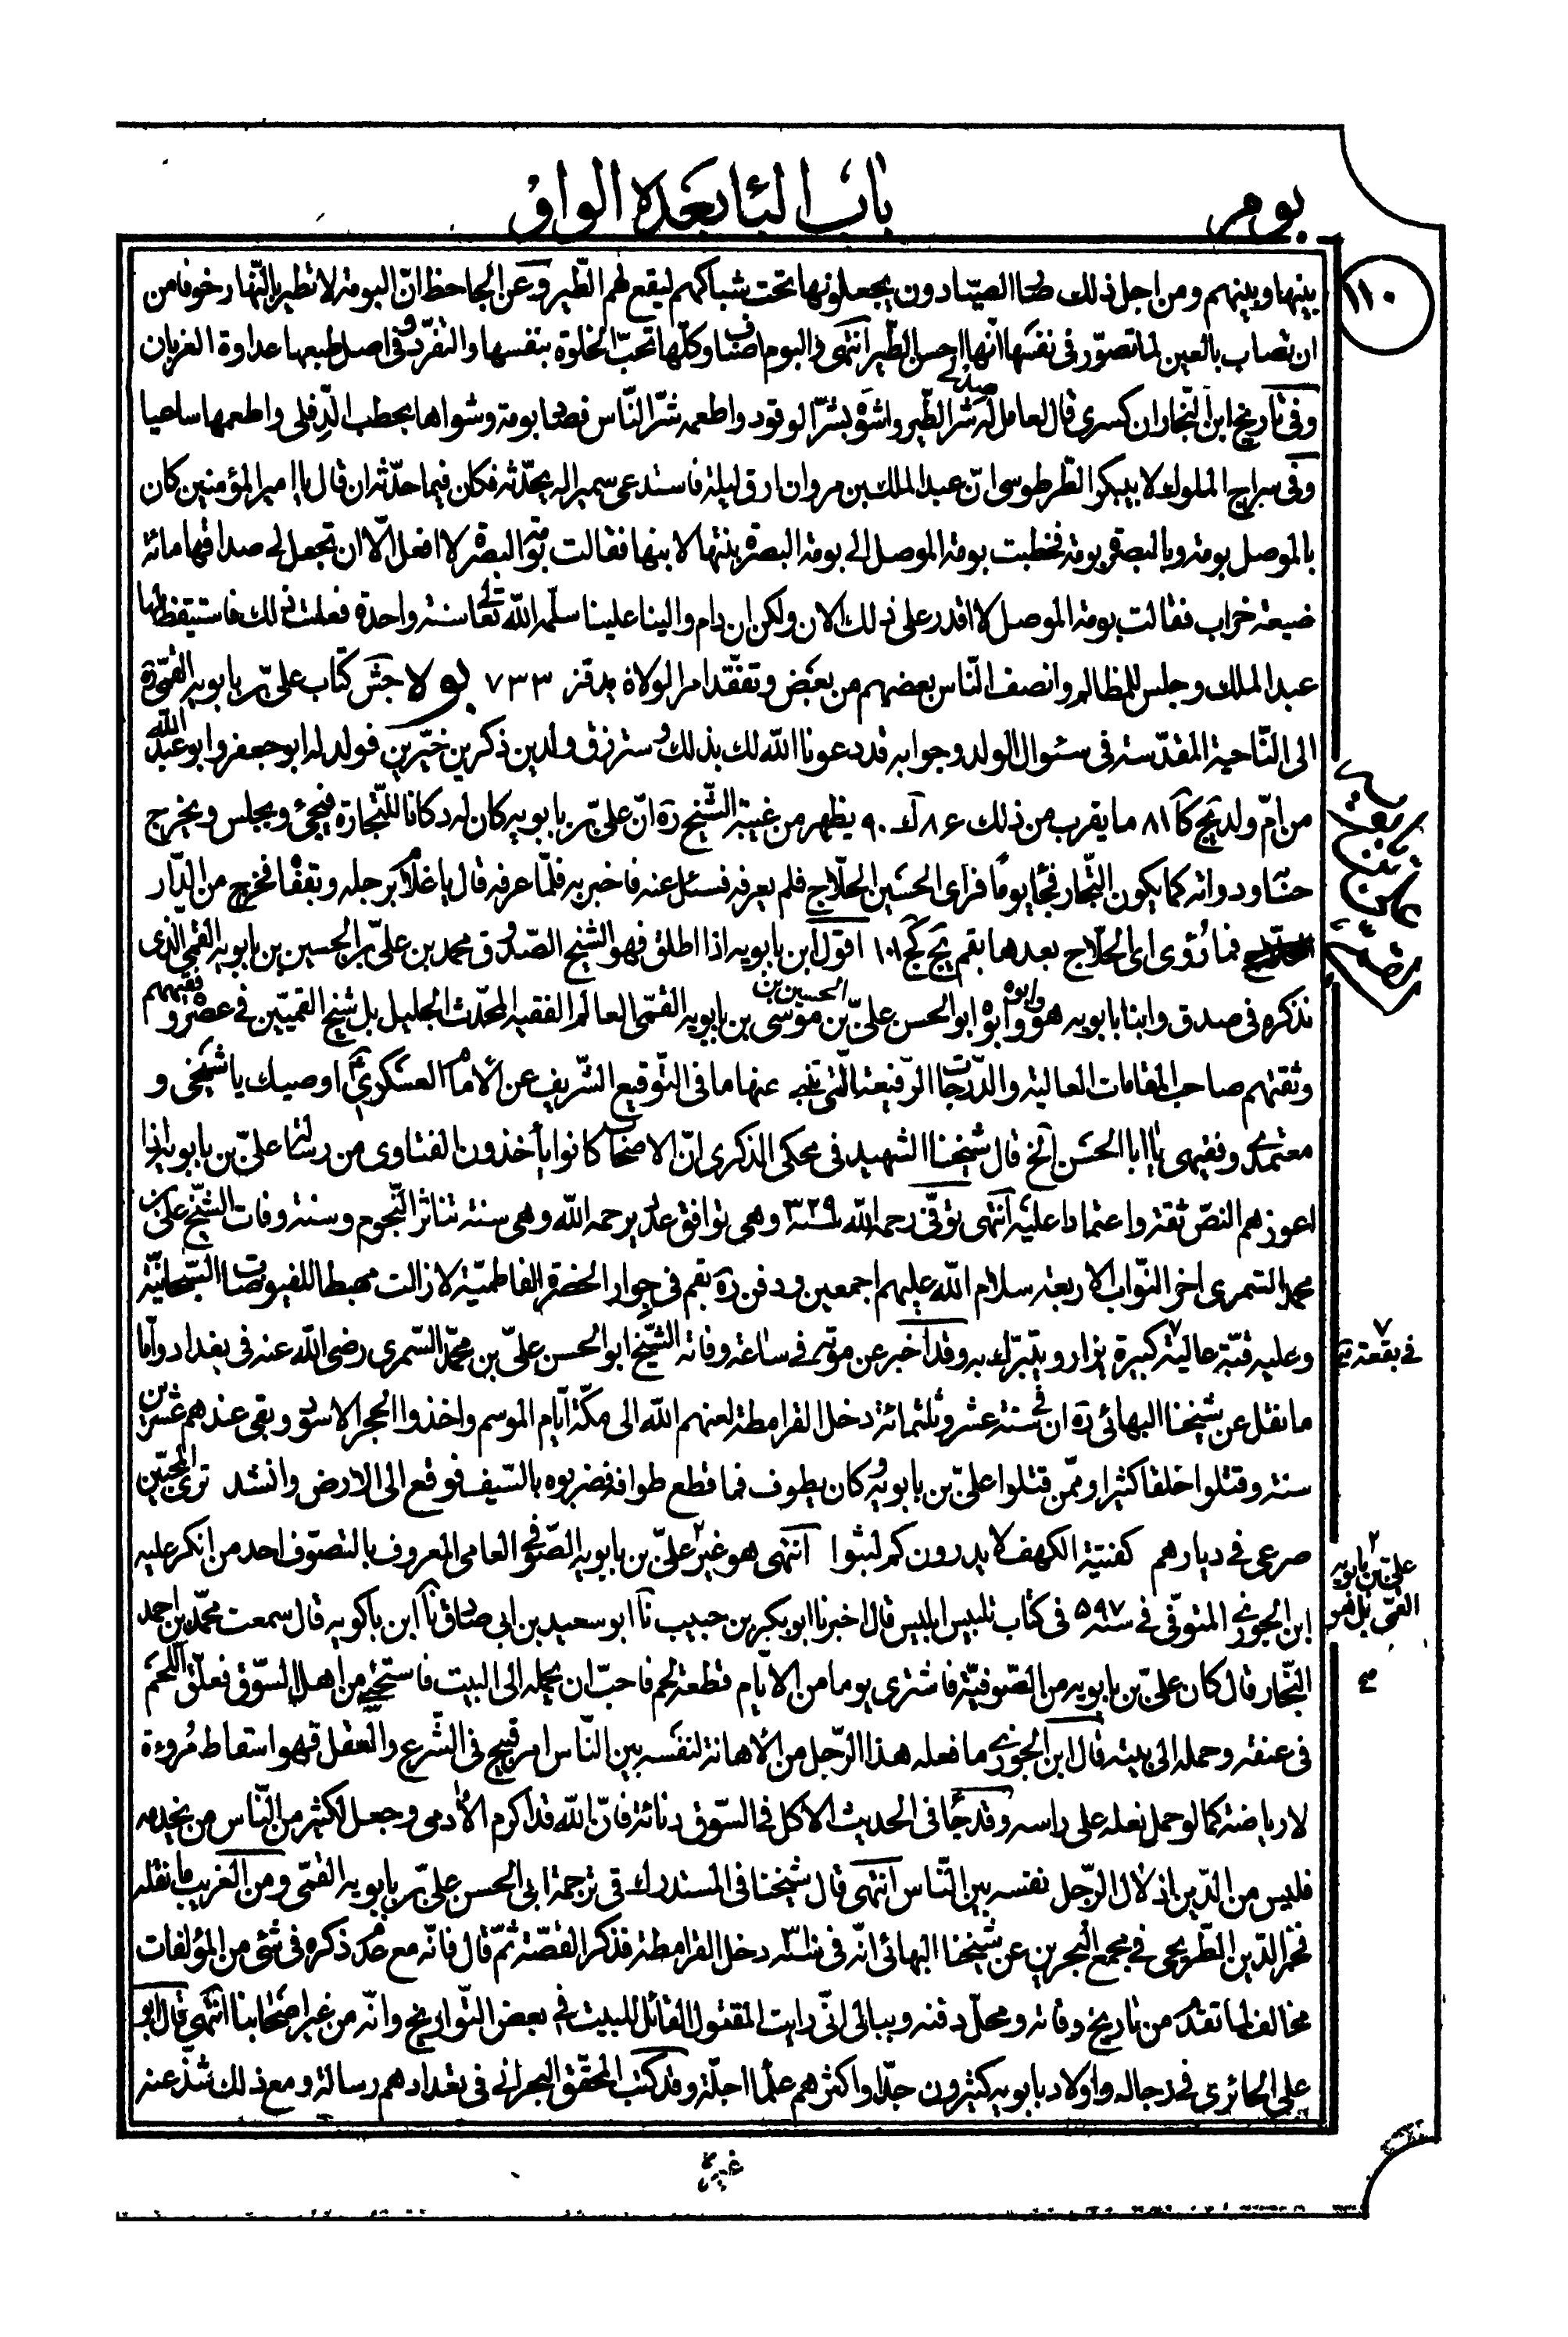 بوم
باب الباء بعده الواو
١١٠
بينها وبينهم ومن اجل ذلك صا الصيّادون يجعلونها تحت شباكهم ليقع لهم الطّير وعن الجاحظ انّ البومة لا تطير بالنّهار خوفا من
ان تصاب بالعين لما تصوّر فى نفسها انّها احسن الطّير انتهى والبوم اصناف وكلّها تحبّ الخلوة بنفسها والتفرّد وفى اصل طبعها عداوة الغربان
وفى تاريخ ابن النّجار ان كسرى قال لعامل له صد لى شرّ الطّير واشوه بشرّ الوقود واطعمه شرّ النّاس فصا بومة وشواها بحطب الدّفلى واطعمها ساعيا
وفى سراج الملوك لابيبكر الطّرطوسى انّ عبد الملك بن مروان ارق ليلة فاستدعى سميرا له يحدّثه فكان فيما حدّثه ان قال يا امير المؤمنين كان
بالموصل بومة وبالبصرة بومة فخطبت بومة الموصل الى بومة البصرة بنتها لابنها فقالت بومة البصرة لا افعل الّا ان تجعل لى صداقها مائة
ضيعة خراب فقالت بومة الموصل لا اقدر على ذلك الان ولكن ان دام والينا علينا سلّمه الله تعا سنة واحدة فعلت ذلك فاستيقظ لها
عبد الملك وجلس للمظالم وانصف النّاس بعضهم من بعض وتفقّد امر الولاة يدقز ٧٣٣ بولا جش كتاب علىّ بن بابويه القمى ره
الى النّاحية المقدّسة فى سئوال الولد وجوابه قد دعونا الله لك بذلك وسترزق ولدين ذكرين خيّرين فولد له ابو جعفر وابو عبد الله
من امّ ولد يج كا ٨١ ما يقرب من ذلك ٨۶ ك ٩٠ يظهر من غيبة الشّيخ ره انّ علىّ بن بابويه كان له دكانا للتّجارة فيجئ ويجلس ويخرج
حسابه ودواته كما يكون التّجار فجا يوما فراى الحسين الحلّاج فلم يعرفه فسئل عنه فاخبر به فلمّا عرفه قال يا غلام برجله وبقفاه فخرج من الدّار
فما رُؤى اى الحلّاج بعدها بقم يج كج ١٠١ اقول ابن بابويه اذا اطلق فهو الشيخ الصّدوق محمد بن علىّ بن الحسين بن بابويه القمى الّذى
نذكره فى صدق وابنا بابويه هو وابوه ابو الحسن علىّ بن الحسين بن موسى بن بابويه القمّى العالم الفقيه المحدّث الجليل بل شيخ القميّين فى عصره وفقيههم
وثقتهم صاحب المقامات العالية والدّرجات الرّفيعة الّتى تنبئ عنها ما فى التّوقيع الشّريف عن الامام العسكرىّ اوصيك يا شيخى و
معتمدى وفقيهى يا ابا الحسن الخ قال شيخنا الشهيد فى محكى الذكرى انّ الاصحا كانوا يأخذون الفتاوى من رسالة علىّ بن بابويه اذا
اعوزهم النصّ ثقة واعتمادا عليه انتهى توفّى رحمه الله سنة ٣٢٩ وهى توافق عدد يرحمه الله وهى سنة تناثر النّجوم وسنة وفات الشّيخ علىّ بن
محمد السّمرى اخر النّواب الاربعة سلام الله عليهم اجمعين ودفن ره بقم فى جوار الحضرة الفاطميّة لا زالت مهبطا للفيوضات السّبحانيّة
وعليه قبّة عالية كبيرة يزار ويتبرّك به وقد اخبر عن موته فى ساعة وفاته الشّيخ ابو الحسن علىّ بن محمّد السّمرى رضى الله عنه فى بغداد وامّا
ما نقل عن شيخنا البهائى ره ان فى سنة عشر وثلثمائة دخل القرامطة لعنهم الله الى مكّة ايّام الموسم واخذوا الحجر الاسود وبقى عندهم عشرين
سنة وقتلوا خلقا كثيرا وممّن قتلوا علىّ بن بابويه وكان يطوف فما قطع طوافه فضربوه بالسّيف فوقع الى الارض وانشد ترى المحبّين
صرعى فى ديارهم كفتية الكهف لا يدرون كم لبثوا انتهى هو غير علىّ بن بابويه الصّوفى العامى المعروف بالتصوّف احد من انكر عليه
ابن الجوزى المتوفّى فى سنة ۵٩٧ فى كتاب تلبيس ابليس قال اخبرنا ابو بكر بن حبيب نا ابو سعيد بن ابى صادق نا ابن باكويه قال سمعت محمّد بن احمد
النّجار قال كان علىّ بن بابويه من الصّوفيّة فاشترى يوما من الايّام قطعة لحم فاحبّ ان يحمله الى البيت فاستحيى من اهل السّوق فعلّق اللّحم
فى عنقه وحمله الى بيته قال ابن الجوزى ما فعله هذا الرّجل من الاهانة لنفسه بين النّاس امر قبيح فى الشّرع والعقل فهو اسقاط مُروءة
لا رياضة كما لو حمل نعله على راسه وقد جا فى الحديث الاكل فى السّوق دنائة فانّ الله قد اكرم الادمى وجعل لكثير من النّاس من يخدمه
فليس من الدّين اذلال الرّجل نفسه بين النّاس انتهى قال شيخنا فى المستدرك فى ترجمة ابى الحسن علىّ بن بابويه القمّى ومن الغريب ما نقله
فخر الدّين الطّريحى فى مجمع البحرين عن شيخنا البهائى انّه فى سنة ٣١٠ دخل القرامطة فذكر القصّة ثمّ قال فانّه مع عدم ذكره فى شئ من المؤلفات
مخالف لما تقدم من تاريخ وفاته ومحلّ دفنه وببالى انّى رايت المقتول القائل للبيت فى بعض التّواريخ وانّه من غير اصحابنا انتهى قال ابو
على الحائرى فى رجاله واولاد بابويه كثيرون جدّا واكثرهم علما اجلّة وقد كتب المحقّق البحرانى فى تعدادهم رسالة ومع ذلك شذّ عنه
فى بقعة
علىّ بن بابويه
القمّى بل هو
غير